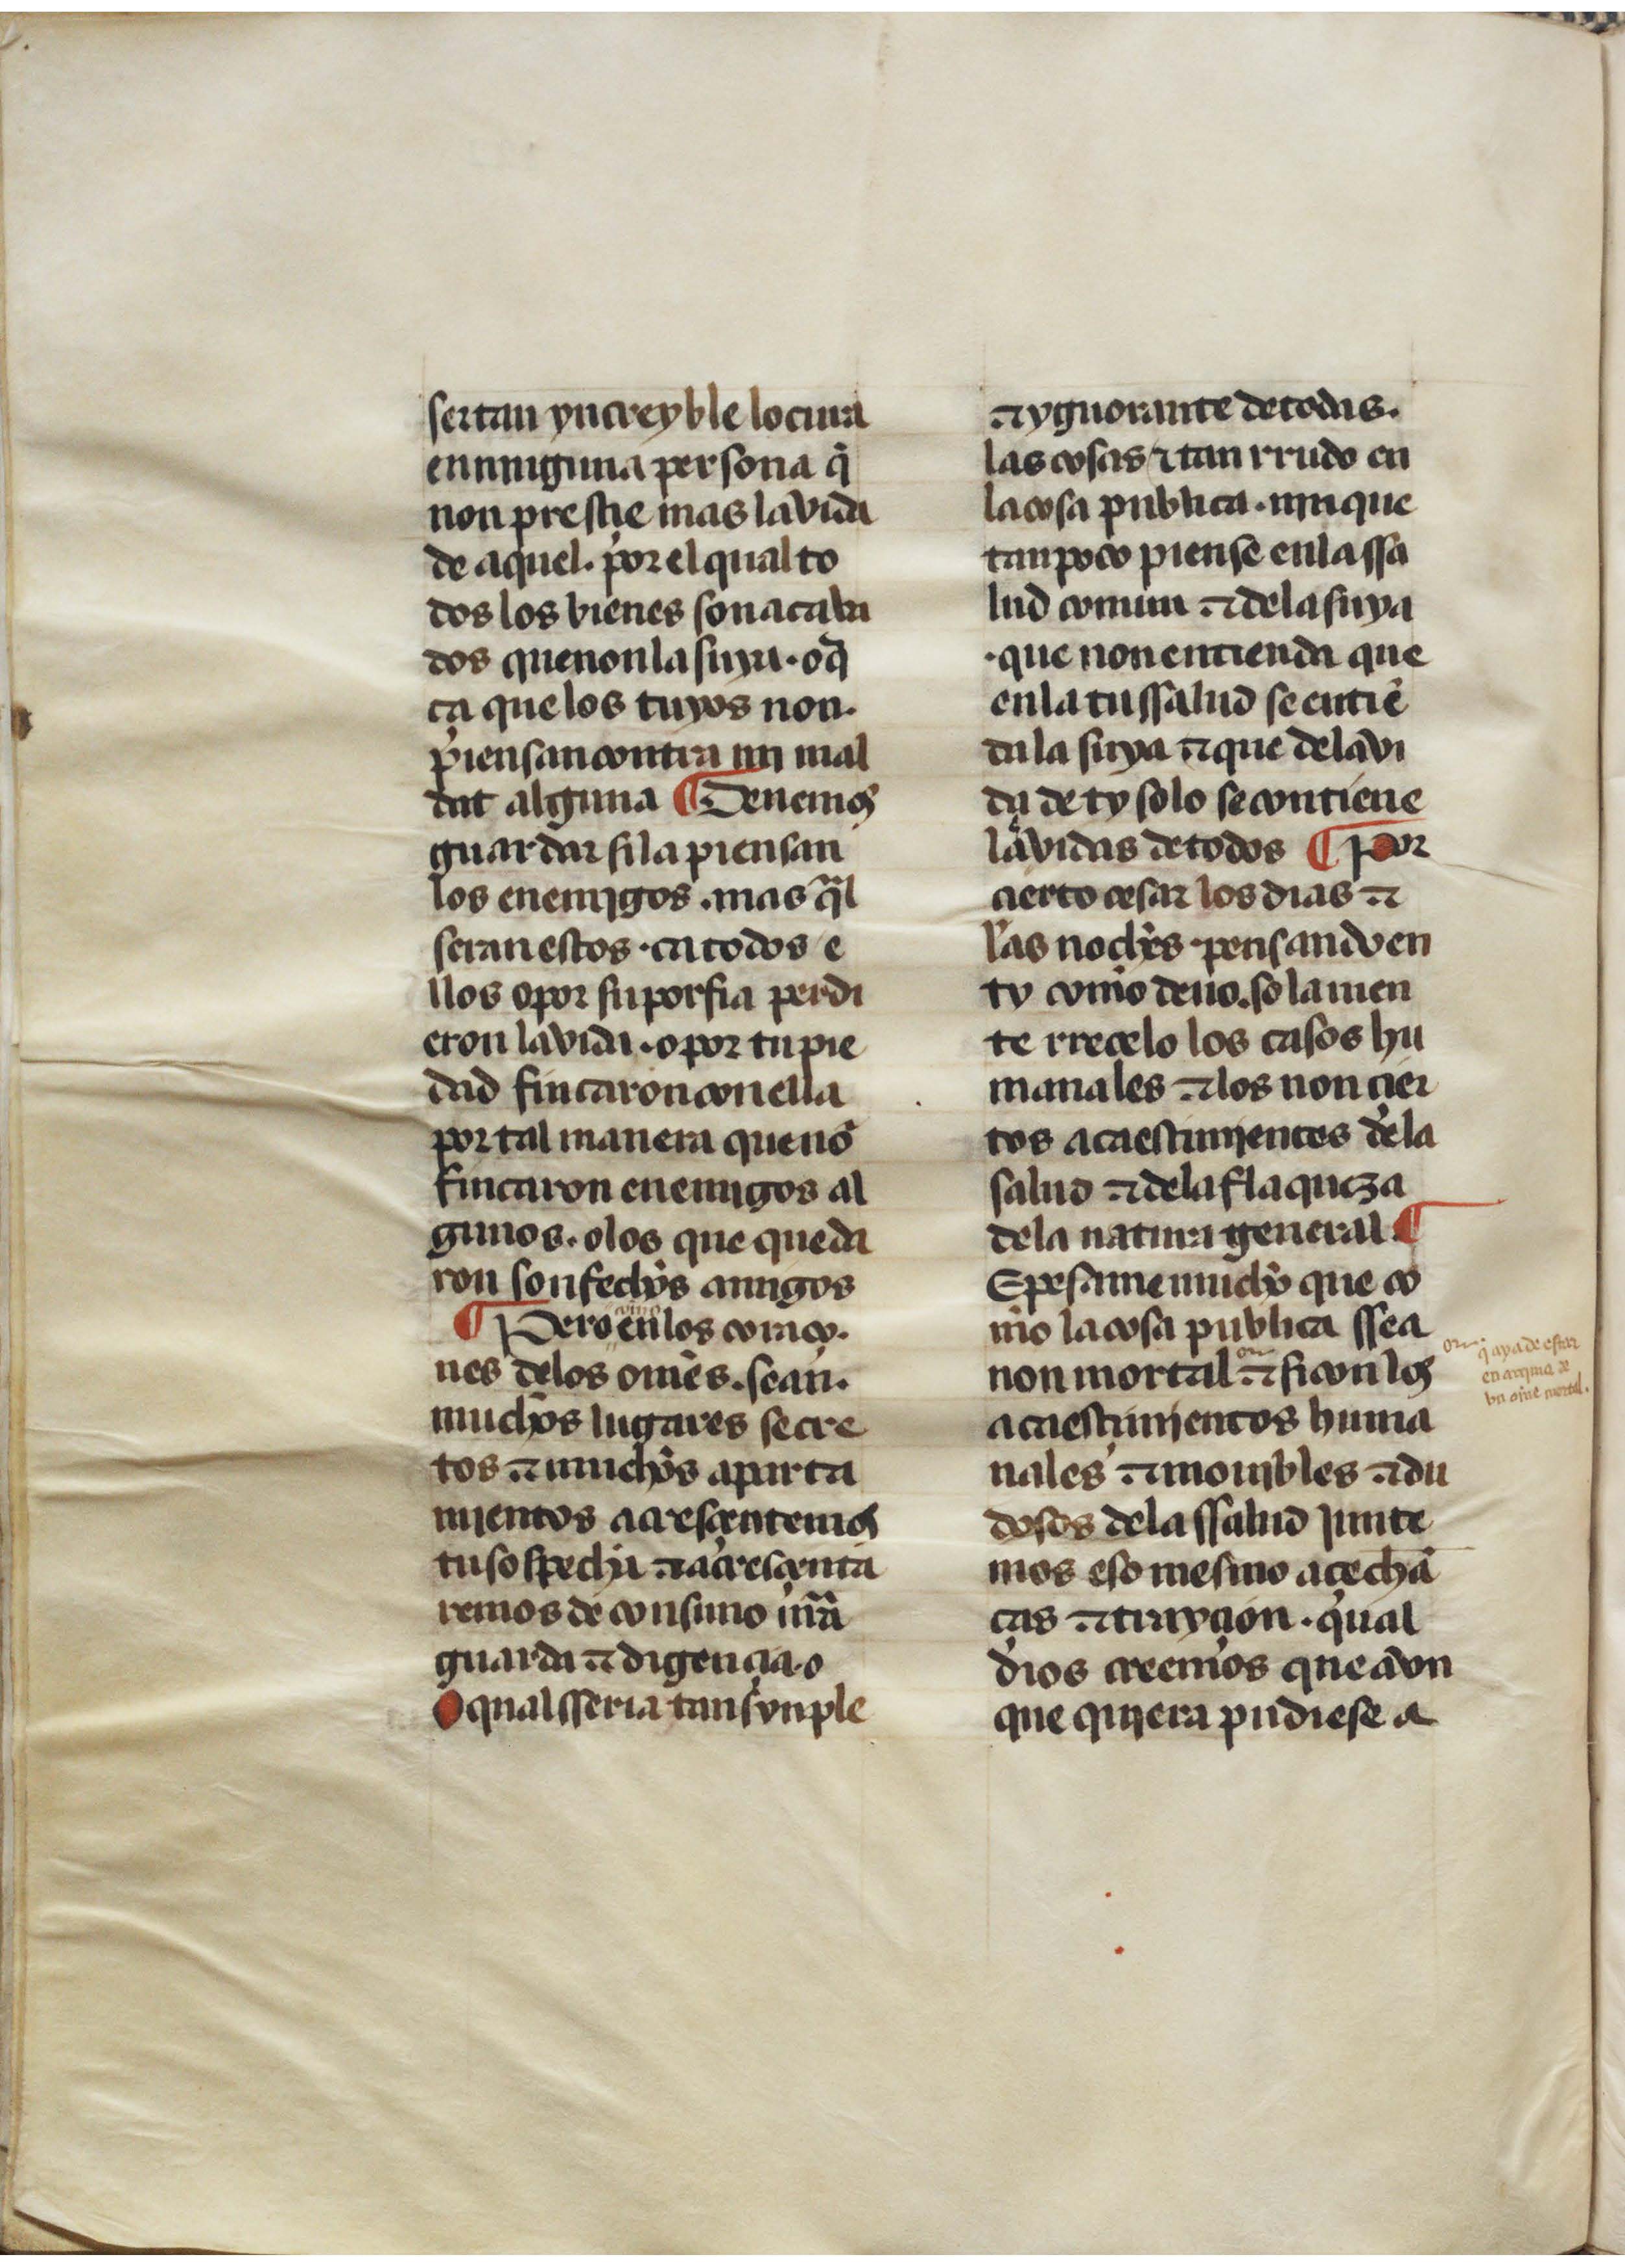 ser tan yncreyble locura
en ninguna persona q̃
non preste mas la vida
de aquel. por el qual to
dos los bienes son acaba
dos que non la suya. o q̃
ca que los tuyos non.
piensan contra mi mal
dat alguna ¶ Deuemos
guardar si la piensan
los enemigos. mas q̃l
seran estos. ca todos e
llos o por su porfia perdi
eron la vida. o por tu pie
dad fincaron con ella
por tal manera que nõ
fincaron enemigos al
gunos. o los que queda
ron son fechos amigos
¶ Pero como en los coraço.
nes delos omẽs. sean.
muchos lugares secre
tos ⁊ muchos aparta
mientos acresçentemos
tu sospecha ⁊ acresçenta
remos de consuno nr̃a
guarda ⁊ digençia. o
O qual sseria tan synple
⁊ ygnorante de todas.
las cosas ⁊ tan rrudo en
la cosa publica. nin que
tan poco piense en la ssa
lud comun ⁊ dela suya
. que non entienda que
en la tu ssalud se entiẽ
da la suya ⁊ que dela vi
da de ty solo se contiene
la vidas de todos ¶ Por
çierto çesar los dias ⁊
las noches. pensando en
ty como deuo. sola men
te rreçelo los casos hu
manales ⁊ los non çier
tos acaesçimientos dela
salud ⁊ dela flaqueza
dela natura general ¶
E pesame mucho que co
mo la cosa publica ssea
non mortal ⁊ si con los
acaesçimientos huma
nales ⁊ mouibles ⁊ du
dosos dela ssalud junte
mos eso mesmo açechã
ças ⁊ trayçion. qual
dios creemos que avn
que quiera pudiese a
q̃ aya de estar
en de
vn om̃e mortal.